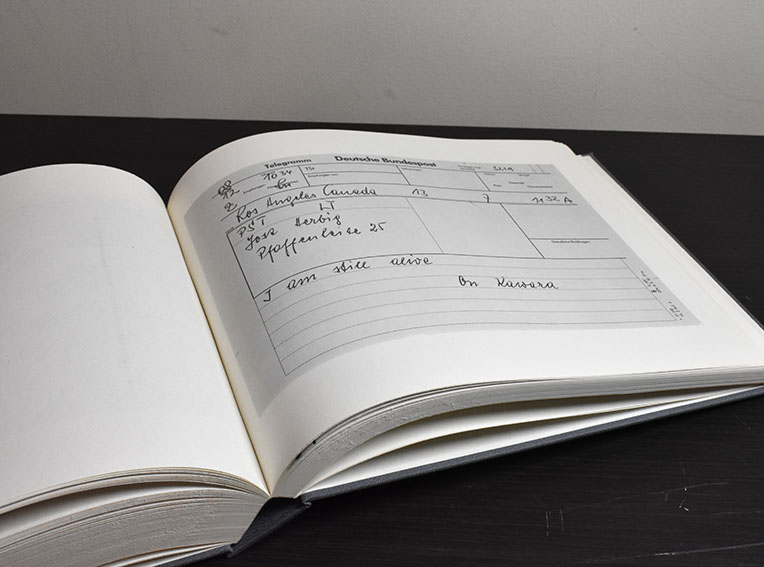 Telegramm Deutsche Bundespost
1034
Los Angeles Canada 13 7 1132 A
PST LT
Jost Herbig
Pfaffenleise 25
I am still alive
On Kawara